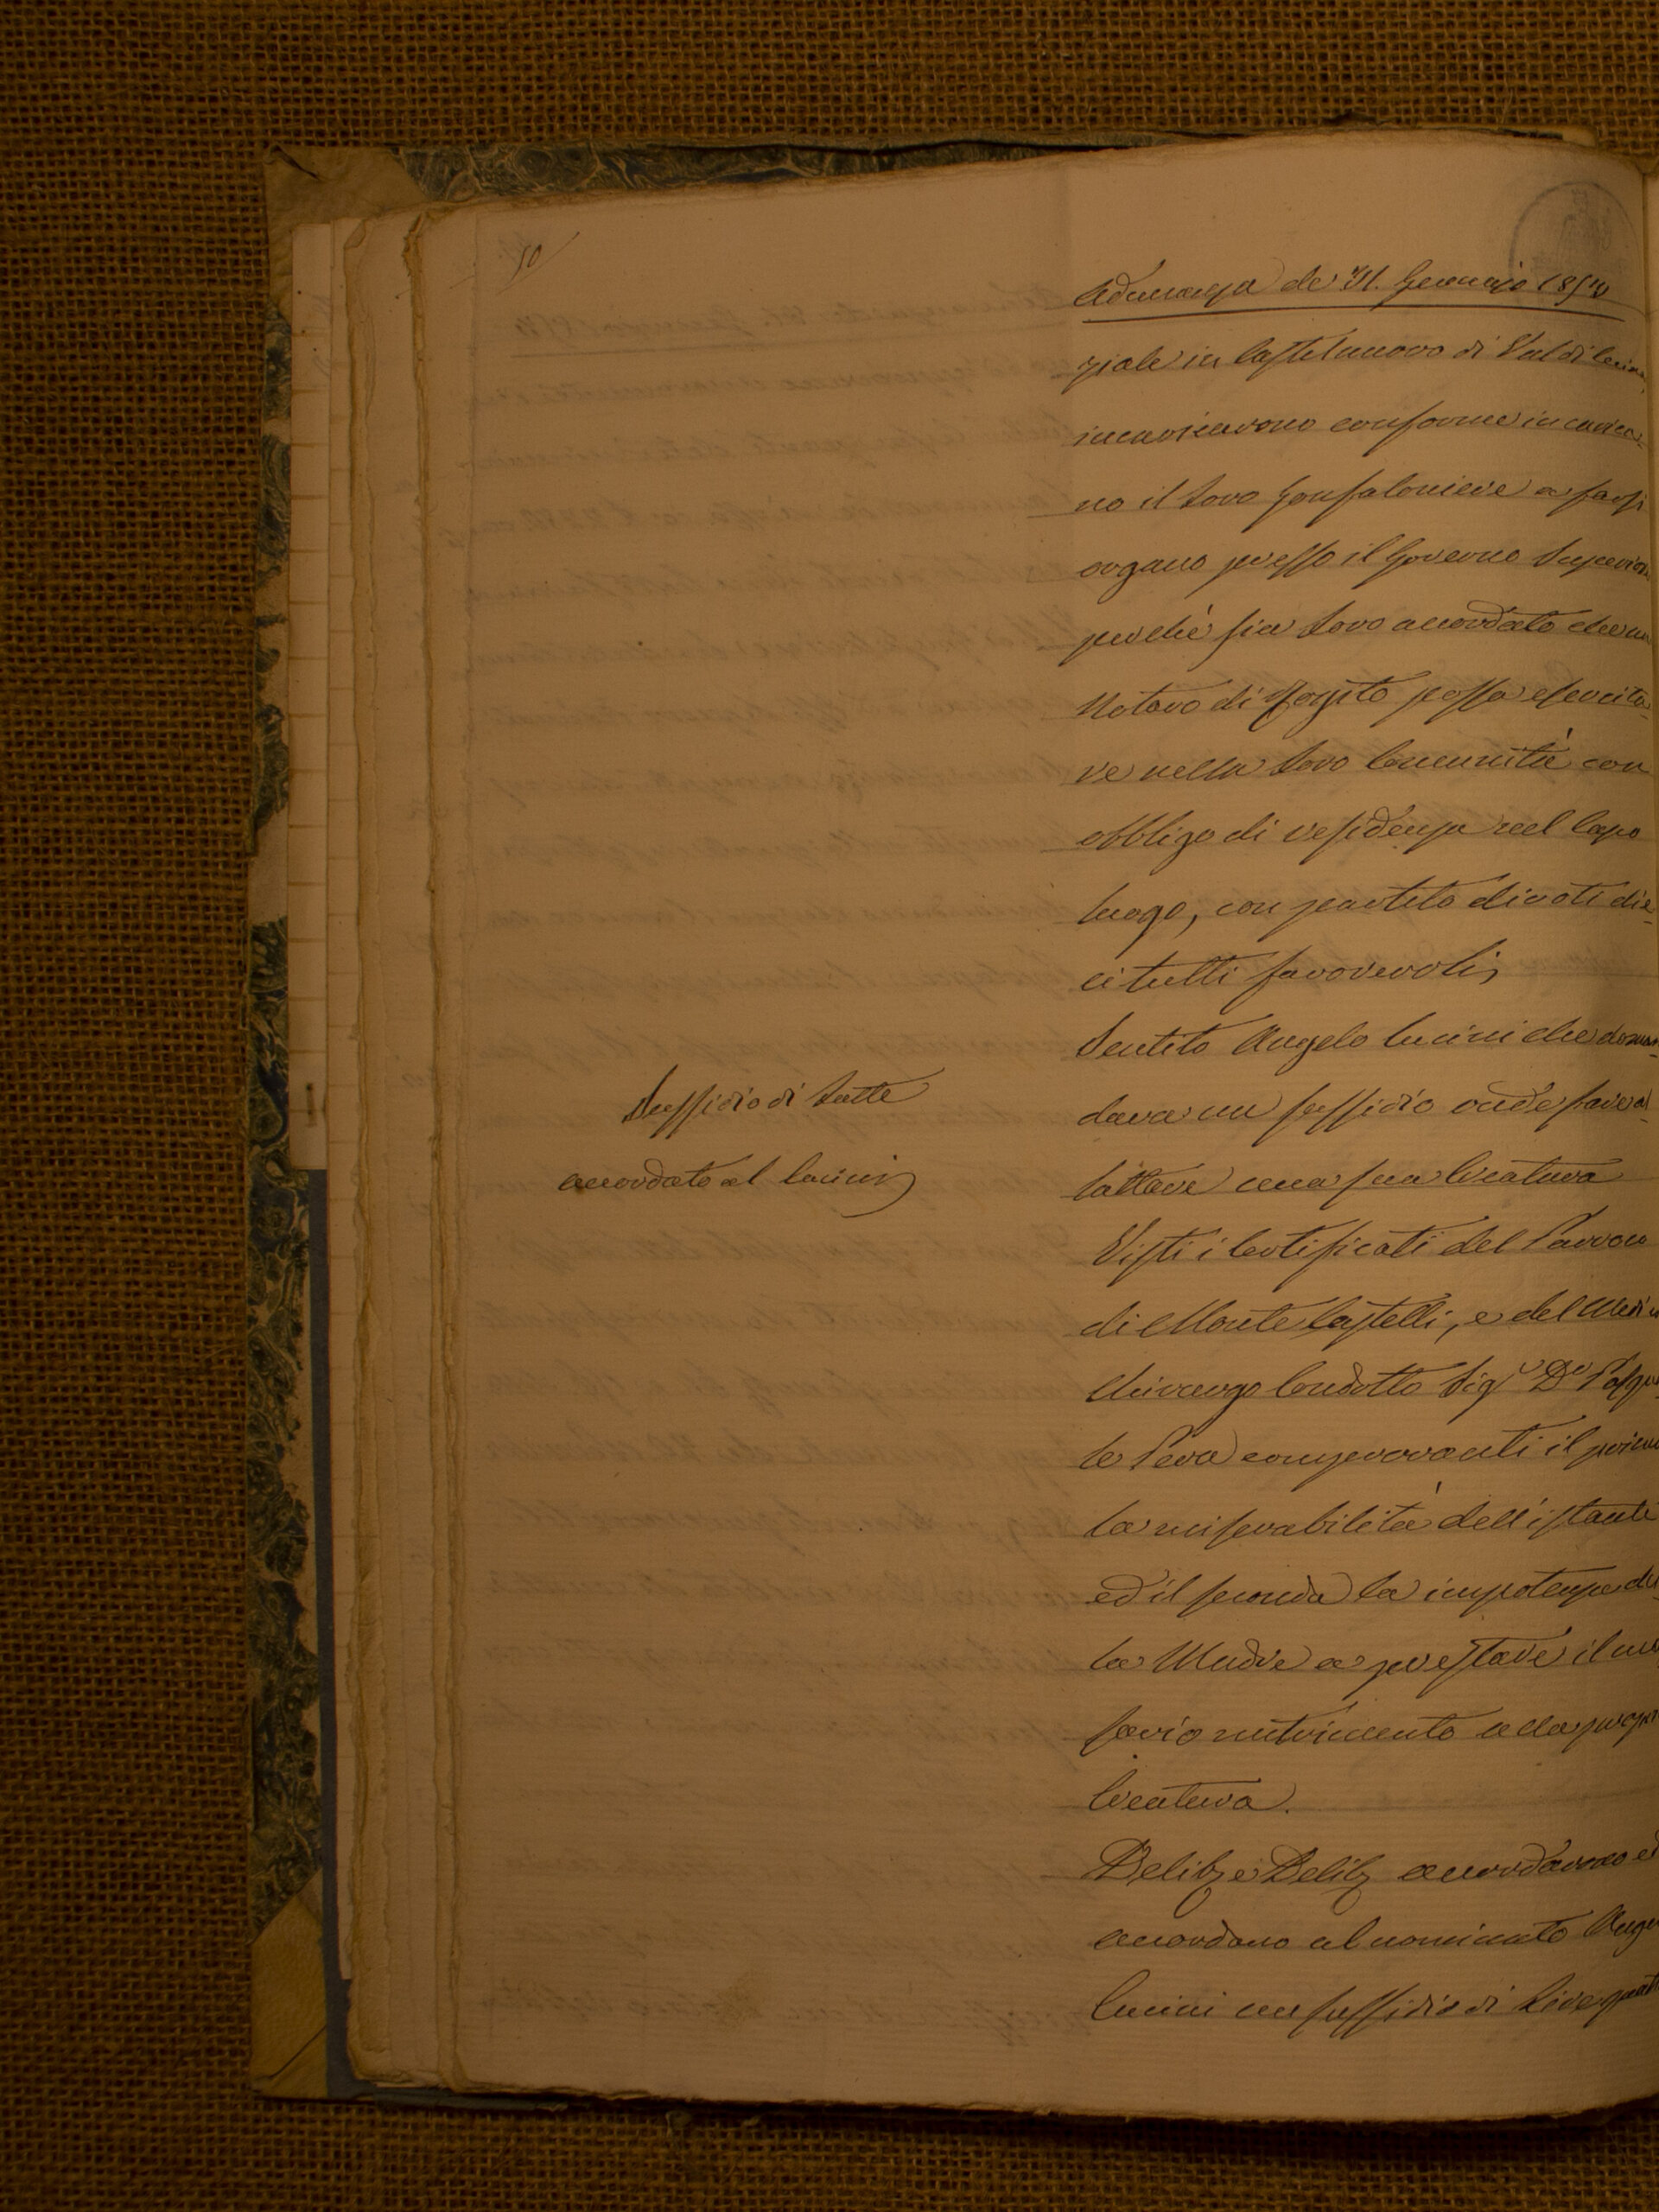 10
Adunanza de' 31. Gennajo 185
ziale in Castelnuovo di Val di Cecina,
incaricarono conforme incarica-
no il Loro Gonfaloniere a farsi
organo presso il Governo Superiore
perchè sia Loro accordato che un
Notaro di Rogito possa esercita-
re nella Loro Comunità con
obbligo di residenza nel Capo
luogo, con partito di voti die-
ci tutti favorevoli,
Sentito Angelo Lucini che doman-
dava un sussidio onde fare al-
lattare una sua Creatura
Visti i Certificati del Parroco
di Monte Castelli, e del Medico
Chirurgo Condotto Sigr Dr Pasqua-
le Pera comprovanti il primo
la miserabilità dell'istante
ed il secondo la impotenza del-
la Madre a prestare il ne
sario nutrimento alla propria
Creatura.
Delib. e Delib. accordarono ed
accordano al nominato Angelo
Lucini un sussidio di Lire quat
Sussidio di Latte
accordato al Lucini